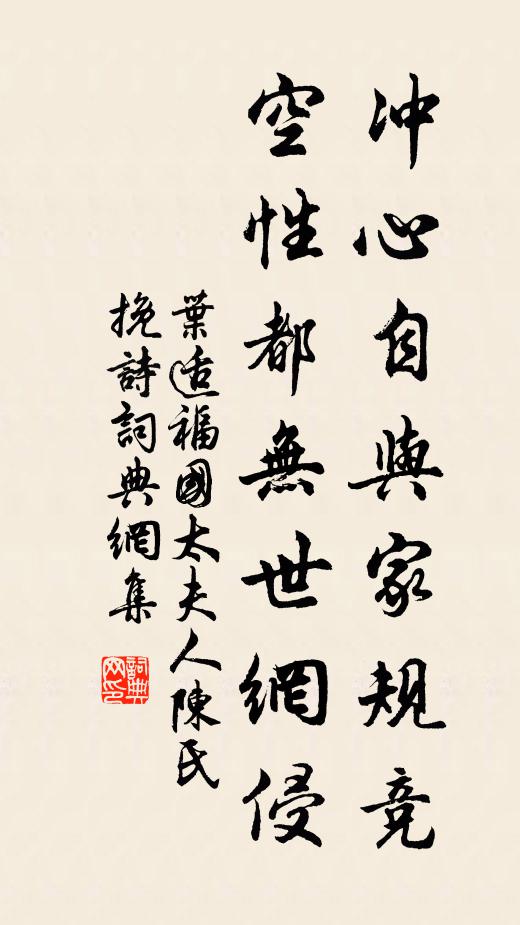 冲心自與家規竞
空性都無世網侵
葉适福國太夫人陳氏
挽詩詞典網集
詞典網印